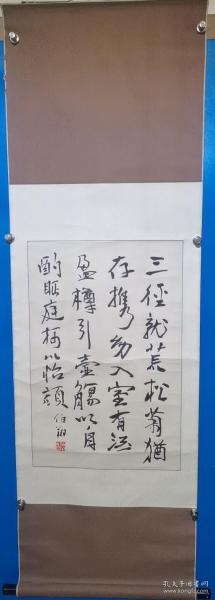 三径就荒松菊猶
存携幼入室有酒
盈樽引壶觴以自
酌眄庭柯以怡顔
伯翔
孔夫子旧书网